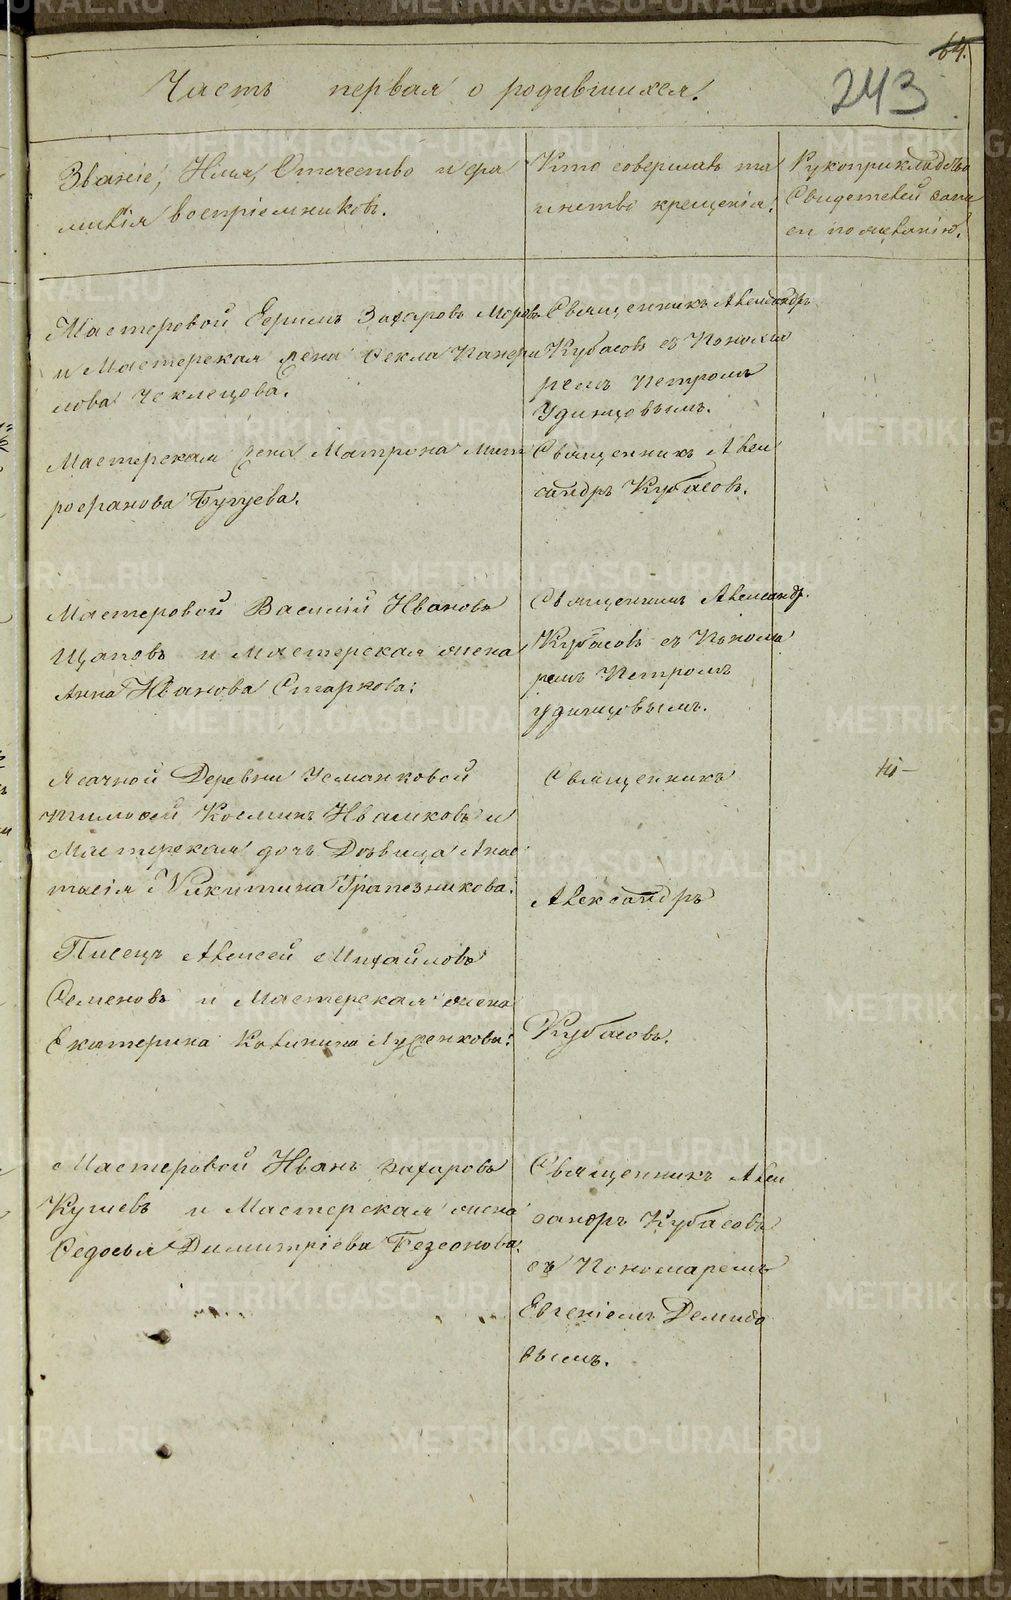 64.
243
Часть первая о родившихся.
Званіе, Имя, Отчество и фа
милія воспріемниковъ.
Кто совершалъ та
инство крещенія.
Рукоприкладство
Свидетелей запи
си по желанію.
Мастеровой Ефимъ Захаровъ
и Мастерская жена Фекла Панфи
лова Чеклецова.
Священникъ Александръ
Кубасовъ съ Понома
ремъ Петромъ
Удинцовымъ.
Мастерская жена Матрона Мит
рофанова Бугуева.
Священникъ Алек
сандръ Кубасовъ.
Мастеровой Василій Ивановъ
Щаповъ и Мастерская жена
Анна Иванова Старкова.
Священникъ Александръ
Кубасовъ съ Понома
ремъ Петромъ
Удинцовымъ.
Ясачной Деревни
Тимофей Козминъ Иваиковъ и
Мастерская дочь Дѣвица Анас
тасія Никитина Трапезникова.
Священникъ
Александръ
Кубасовъ.
Писецъ Алексей Михайловъ
Семеновъ и Мастерская жена
Екатерина Калинина
Мастеровой Иванъ Захаровъ
и Мастерская жена
Федосья Димитріева Безсонова.
Священникъ Алек
сандръ Кубасовъ
съ Пономаремъ
Евгеніемъ Демидо
вымъ.
METRIKI.GASO-URAL.RU